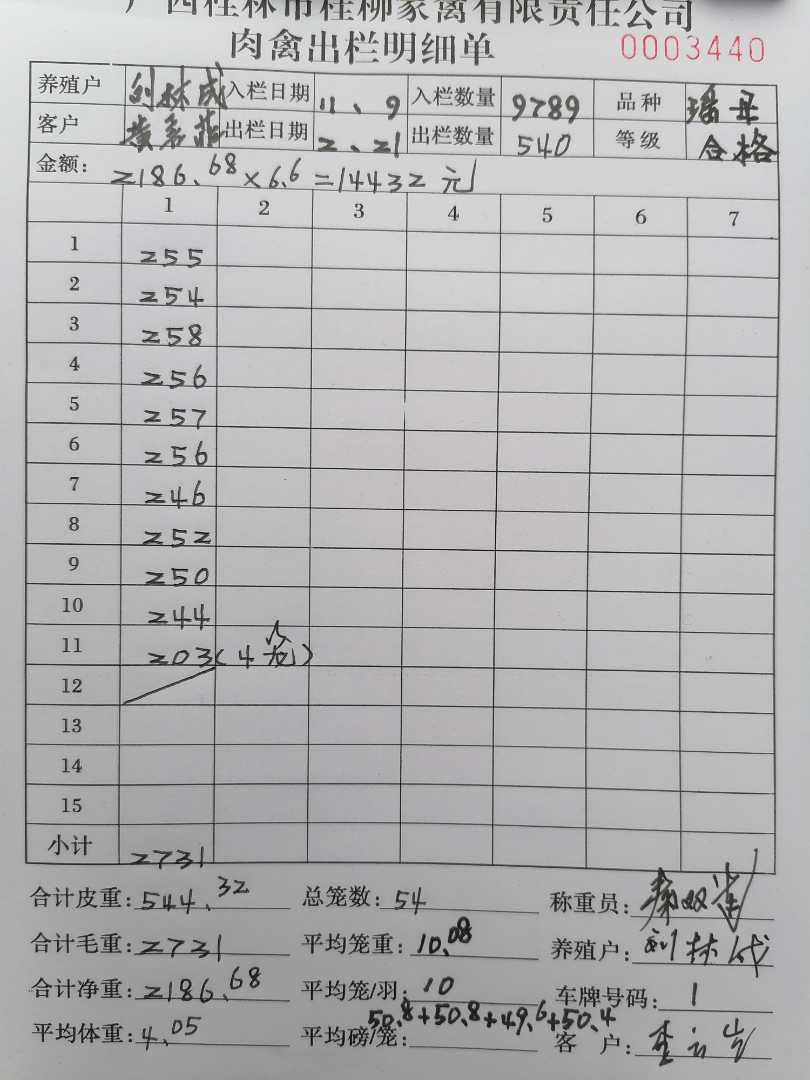 广西桂林市桂柳家禽有限责任公司
肉禽出栏明细单 0003440
养殖户 刘林成 入栏日期 11、9 入栏数量 9789 品种 瑶母
客户 出栏日期 2、21 出栏数量 540 等级 合格
金额: 2186.68×6.6=14432元
1 2 3 4 5 6 7
1 255
2 254
3 258
4 256
5 257
6 256
7 246
8 252
9 250
10 244
11 203(4笼)
12
13
14
15
小计 2731
合计皮重: 544.32 总笼数: 54 称重员:
合计毛重: 2731 平均笼重: 10.08 养殖户: 刘林成
合计净重: 2186.68 平均笼/羽: 10 车牌号码: 1
50.8+50.8+49.6+50.4
平均体重: 4.05 平均磅/笼: 客 户: